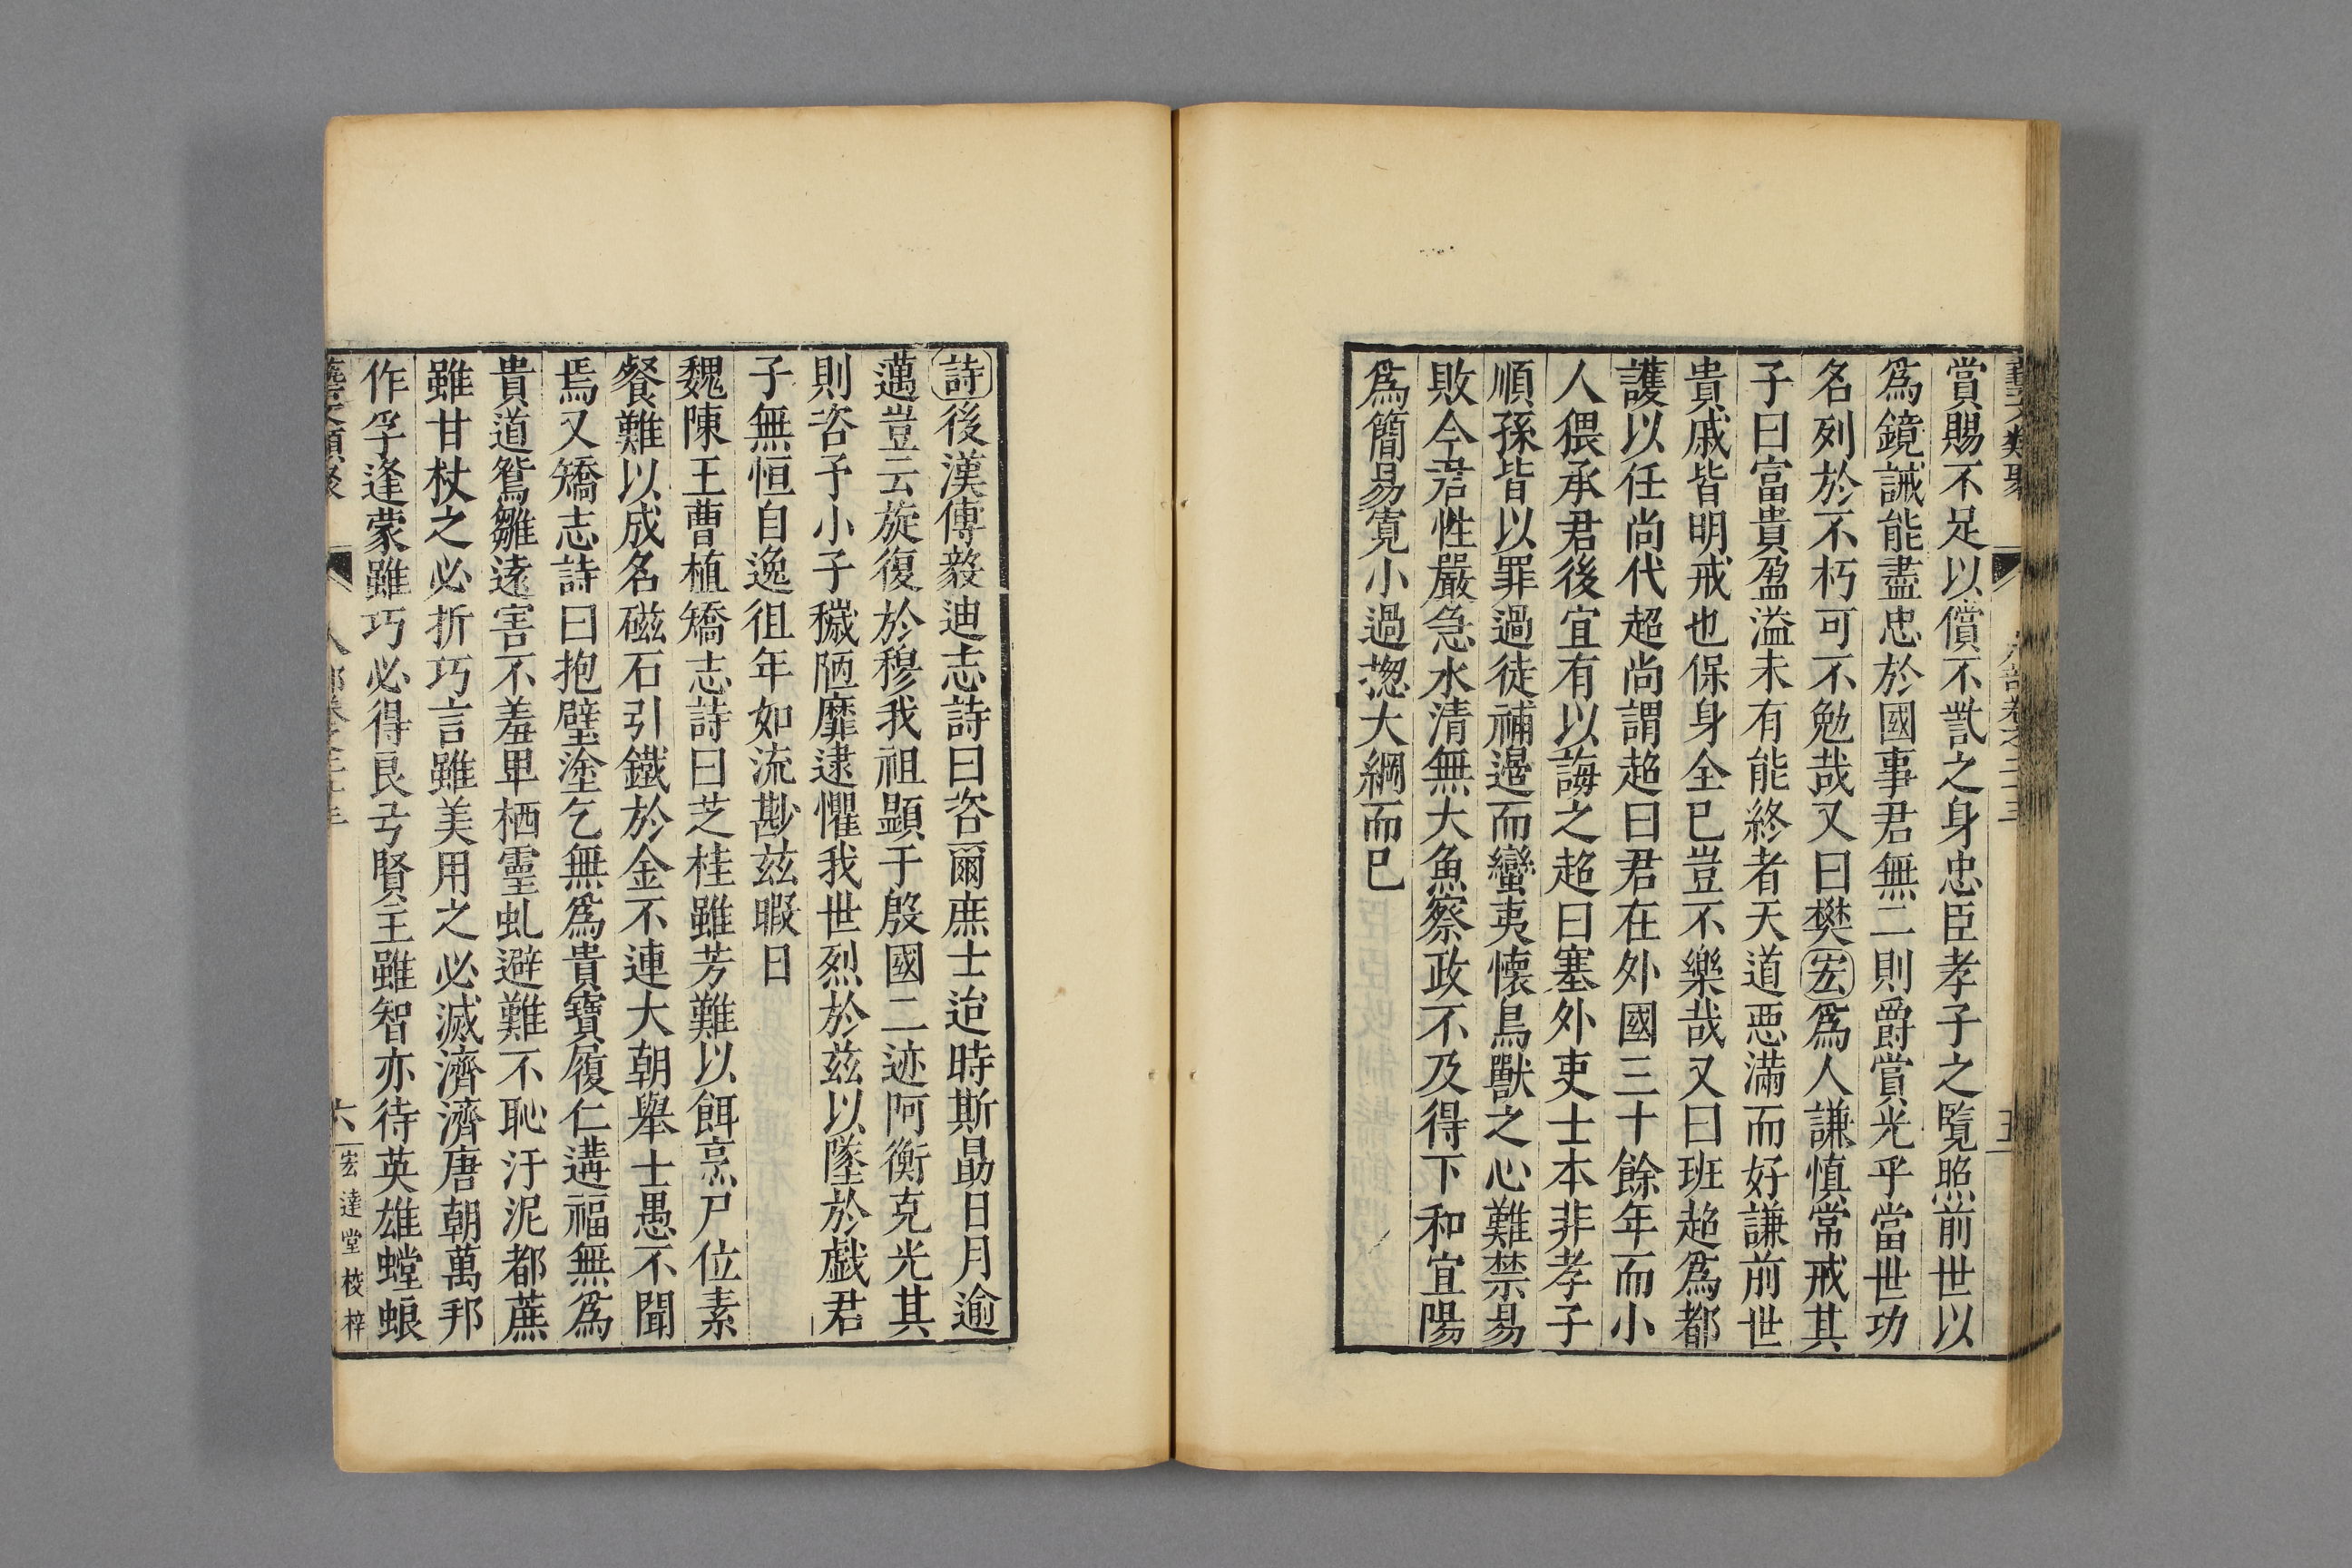 藝文類聚 人部卷之二十三 五
賞賜不足以償不訾之身忠臣孝子之覽照前世以
爲鏡誡能盡忠於國事君無二則爵賞光乎當世功
名列於不朽可不勉哉又曰樊宏爲人謙慎常戒其
子曰富貴盈溢未有能終者天道惡滿而好謙前世
貴戚皆明戒也保身全已豈不樂哉又曰班超爲都
護以任尚代超尚謂超曰君在外國三十餘年而小
人猥承君後宜有以誨之超曰塞外吏士本非孝子
順孫皆以罪過徒補邊而蠻夷懷鳥獸之心難禁易
敗今君性嚴急水清無大魚察政不及得下和宜陽
爲簡易寬小過揔大綱而已
詩後漢傅毅迪志詩曰咨爾庶士迨時斯勗日月逾
邁豈云旋復於穆我祖顯于殷國二迹阿衡克光其
則咨予小子穢陋靡逮懼我世烈於兹以墜於戲君
子無恒自逸徂年如流尠兹暇日
魏陳王曹植矯志詩曰芝桂雖芳難以餌烹尸位素
餐難以成名磁石引鐵於金不連大朝舉士愚不聞
焉又矯志詩曰抱璧塗乞無爲貴寶履仁遘福無爲
貴道鴛雛遠害不羞卑栖靈虬避難不恥汙泥都蔗
雖甘杖之必折巧言雖美用之必滅濟濟唐朝萬邦
作孚逢蒙雖巧必得良弓賢主雖智亦待英雄螳蜋
藝文類聚 人部卷之二十三 六 宏達堂校梓